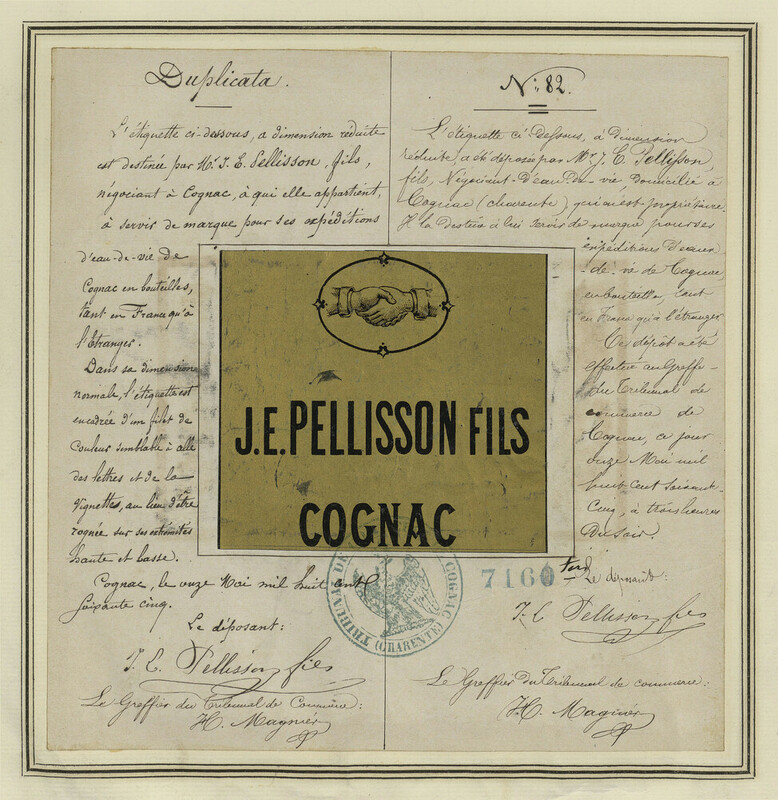 Duplicata.
L'étiquette ci-dessous, a dimension réduite
est destinée par Mr. J. E. Pellisson, fils,
négociant à Cognac, à qui elle appartient,
à servir de marque pour ses expéditions
d'eau-de-vie de
Cognac en bouteilles,
tant en France qu'à
l'étranger.
Dans sa dimension
normale, l'étiquette est
encadrée d'un filet de
couleur semblable à celle
des lettres et de la
vignettes, au lieu d'être
rognée sur ses extrémités
haute et basse.
Cognac, le onze Mai mil huit cent
soixante cinq.
Le déposant:
J. E. Pellisson fils
Le Greffier du Tribunal de Commerce:
H. Magnier
No: 82.
L'étiquette ci Dessous, à Dimension
réduite, a été déposée par Mr. J. E. Pellisson,
fils, Négociant D'eau-De-vie, Domicilié à
Cognac (charente) qui en est propriétaire.
Il la Destine à lui servir de marque pour ses
expéditions D'eaux
-de-vie de Cognac
en bouteilles, tant
en France qu'à l'étranger
Ce dépôt a été
effectué au Greffe
du Tribunal de
commerce de
Cognac, ce jour
onze Mai mil
huit cent soixante-
cinq, à trois heures
Du soir.
Le déposant:
J. E. Pellisson fils
Le Greffier du Tribunal de commerce:
H. Magnier
J.E. PELLISSON FILS
COGNAC
TRIBUNAL DE COGNAC (CHARENTE)
7160 ter